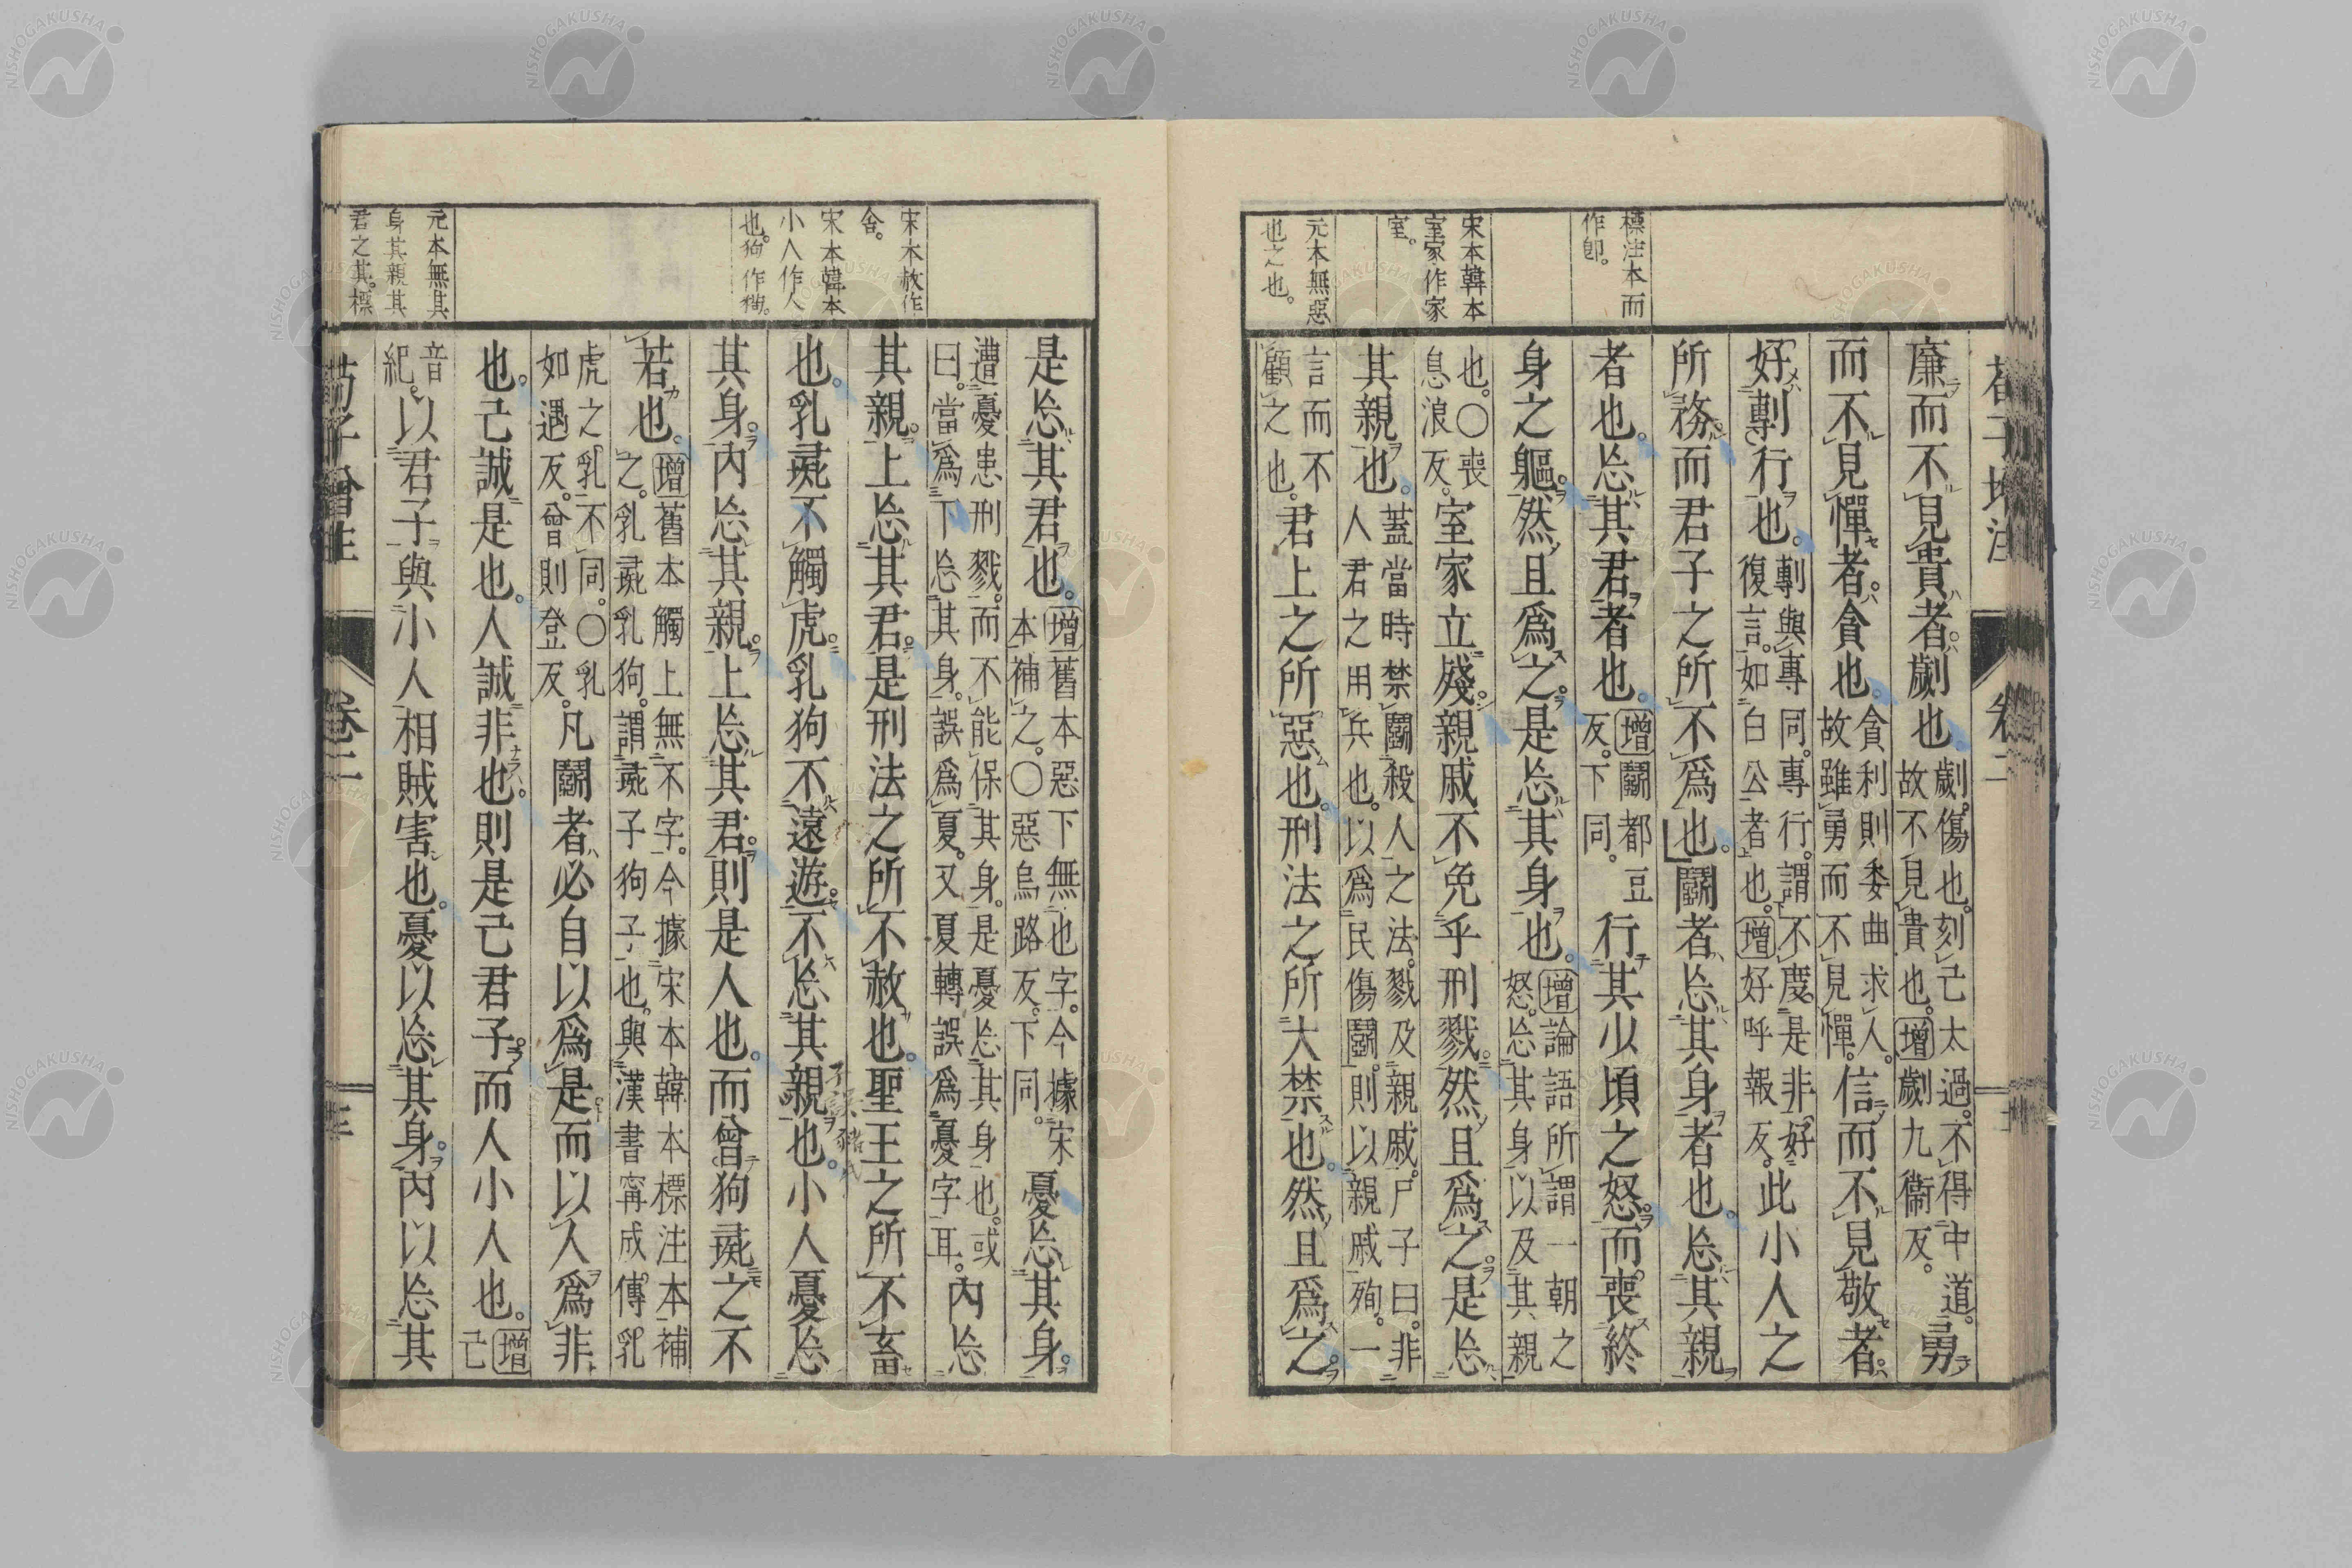 荀子增注
卷二
標注本而
作卽。
宋本韓本
室家作家
室。
元本無惡
也之也。
廉而不見貴者。劌也。劌。傷也。刻己太過。不得中道。故不見貴也。增劌九衞反。勇
而不見憚者。貪也。貪利則委曲求人。故雖勇而不見憚。信而不見敬者。
好剸行也。剸與專同。專行。謂不度是非。好復言。如白公者也。增好呼報反。此小人之
所務。而君子之所不爲也。鬭者忘其身者也。忘其親
者也。忘其君者也。增鬭都豆反。下同。行其少頃之怒。而喪終
身之軀。然且爲之。是忘其身也。增論語所謂一朝之怒。忘其身以及其親
也。〇喪息浪反。室家立殘。親戚不免乎刑戮。然且爲之。是忘
其親也。蓋當時禁鬭殺人之法。戮及親戚。尸子曰。非人君之用兵也。以爲民傷鬭。則以親戚殉。一
言而不顧之也。君上之所惡也。刑法之所大禁也。然且爲之。
宋本赦作
舍。
宋本韓本
小人作人
也。狗作㺃。
元本無其
身其親其
君之其。標
是忘其君也。增舊本惡下無也字。今據宋本補之。〇惡烏路反。下同。憂忘其身。
遭憂患刑戮。而不能保其身。是憂忘其身也。或曰。當爲下忘其身。誤爲夏。又夏轉誤爲憂字耳。內忘
其親。上忘其君。是刑法之所不赦也。聖王之所不畜
也。乳彘不觸虎。乳狗不遠遊。不忘其親也。小人憂忘
其身。內忘其親。上忘其君。則是人也。而曾狗彘之不
若也。增舊本觸上無不字。今據宋本韓本標注本補之。乳彘乳狗。謂彘子狗子也。與漢書甯成傳乳
虎之乳不同。〇乳如遇反。曾則登反。凡鬭者必自以爲是。而以人爲非
也。己誠是也。人誠非也。則是己君子。而人小人也。增己
音紀。以君子與小人相賊害也。憂以忘其身。內以忘其
荀子增注
卷二